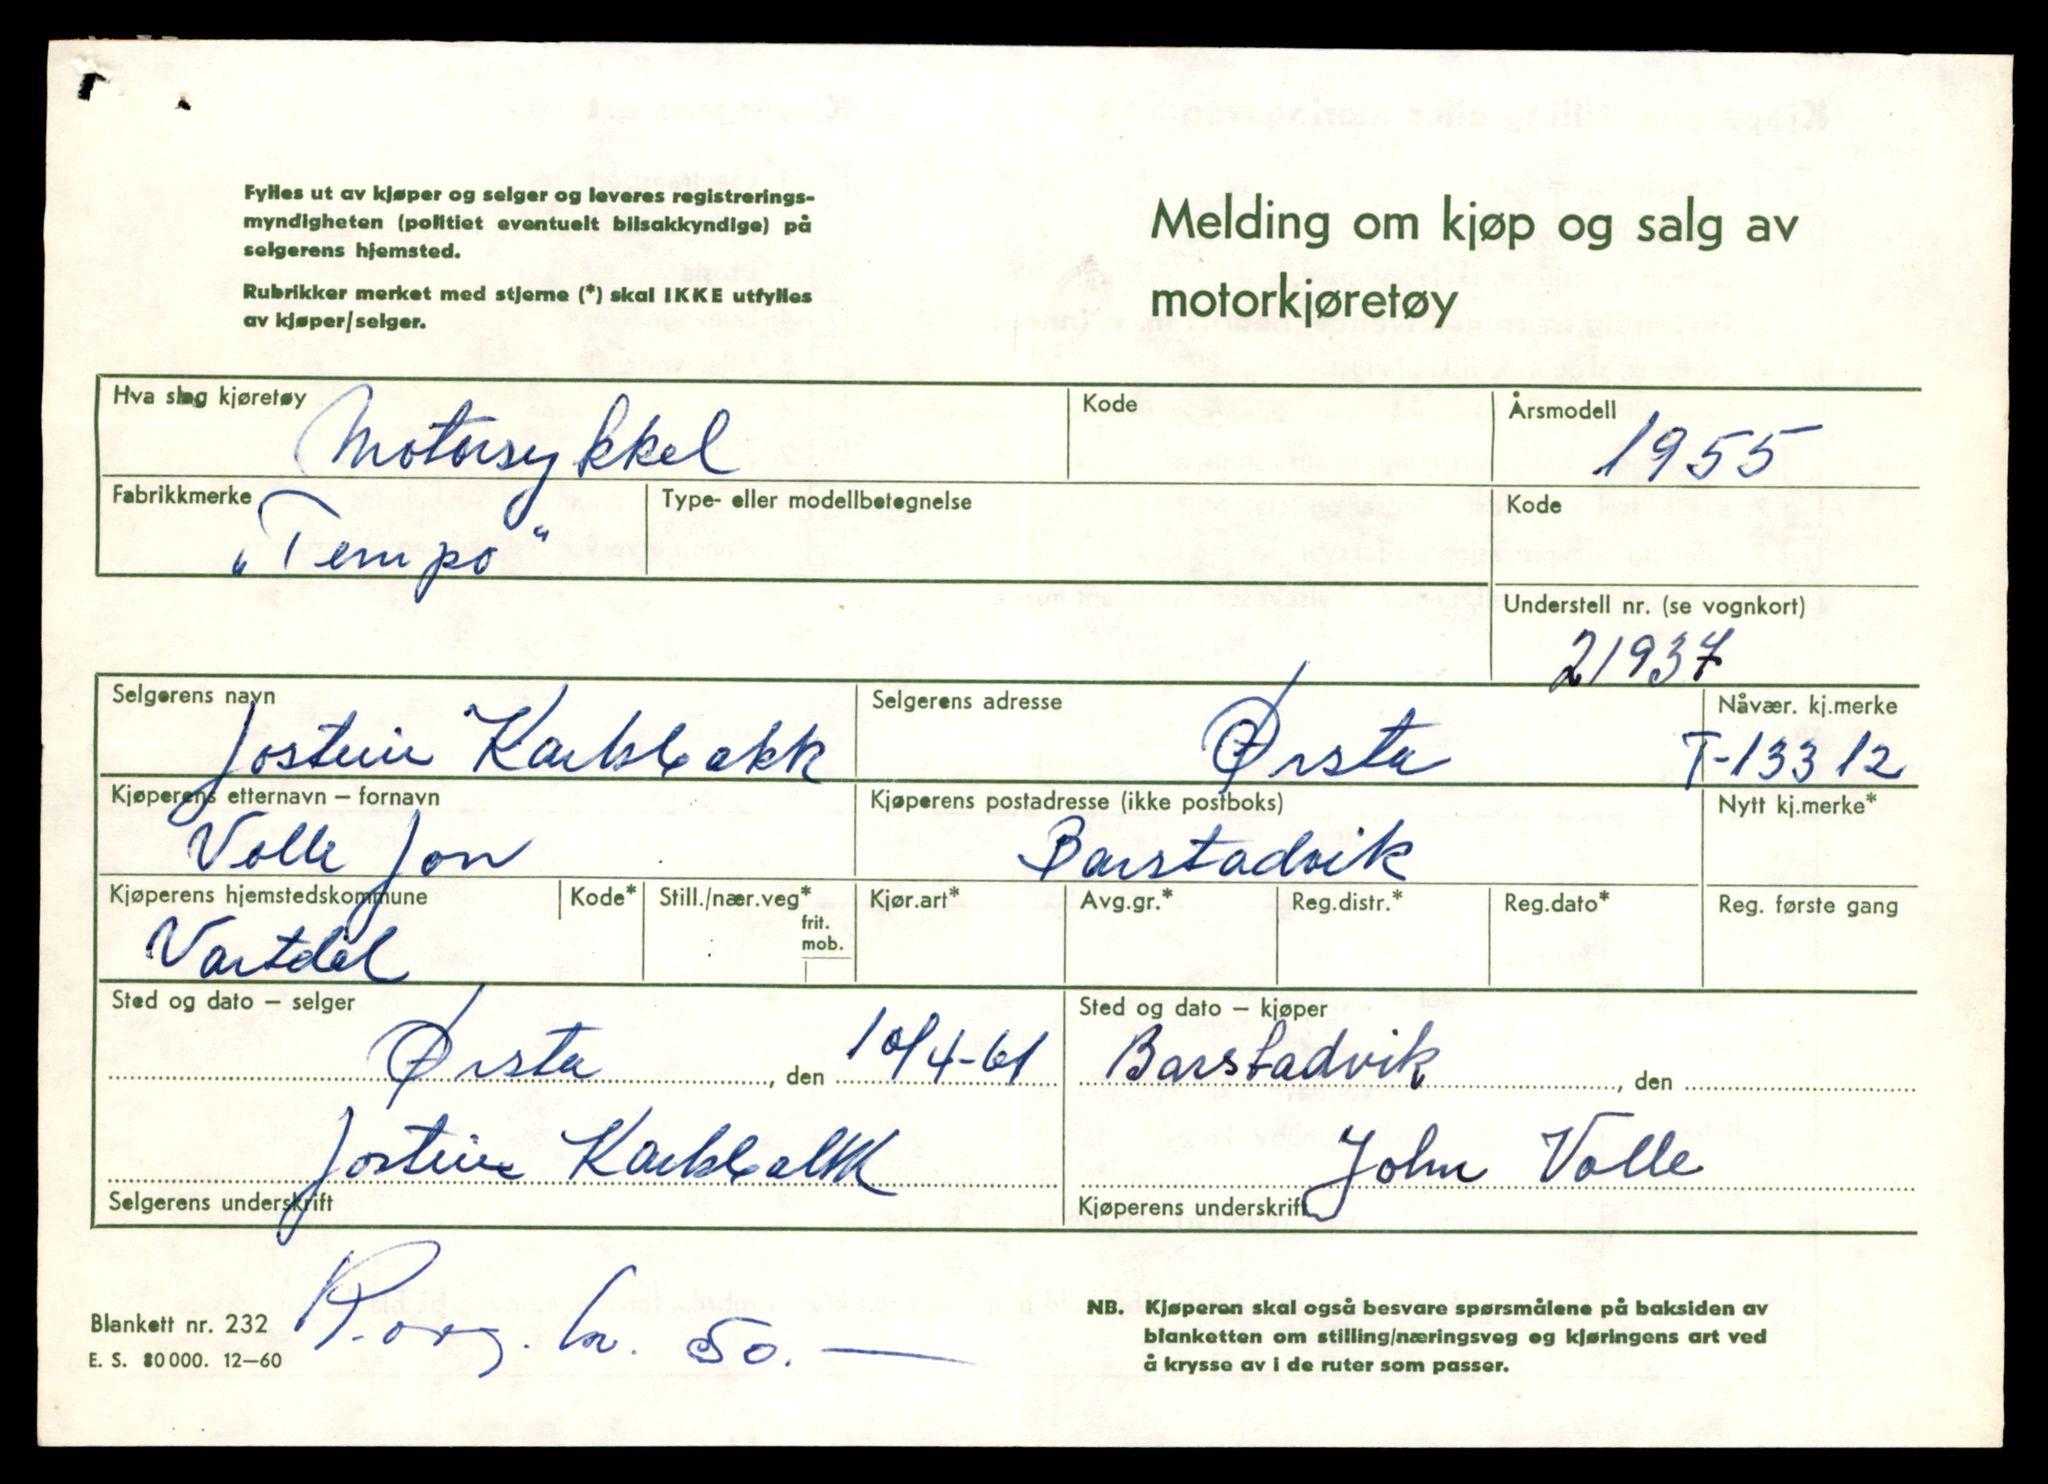 Fylles ut av kjøper og selger og leveres registrerings-
myndigheten (politiet eventuelt bilsakkyndige) på
selgerens hjemsted.
Rubrikker merket med stjerne (*) skal IKKE utfylles
av kjøper/selger.
Melding om kjøp og salg av
motorkjøretøy
Hva slag kjøretøy
Motorsykkel
Kode
Årsmodell
1955
Fabrikkmerke
„Tempo"
Type- eller modellbetegnelse
Kode
Understell nr. (se vognkort)
21937
Selgerens navn
Jostein Karlsbakk
Selgerens adresse
Ørsta
Nåvær. kj.merke
T-13312
Kjøperens etternavn – fornavn
Volle Jon
Kjøperens postadresse (ikke postboks)
Barstadvik
Nytt kj.merke*
Kjøperens hjemstedskommune
Vartdal
Kode*
Still./nær.veg*
frit.
mob.
Kjør.art*
Avg.gr.*
Reg.distr.*
Reg.dato*
Reg. første gang
Sted og dato – selger
Ørsta, den 10/4-61
Sted og dato – kjøper
Barstadvik, den
Jostein Karlsbakk
Selgerens underskrift
John Volle
Kjøperens underskrift
Blankett nr. 232
E. S. 80 000. 12–60
kr. 50.—
NB. Kjøperen skal også besvare spørsmålene på baksiden av
blanketten om stilling/næringsveg og kjøringens art ved
å krysse av i de ruter som passer.